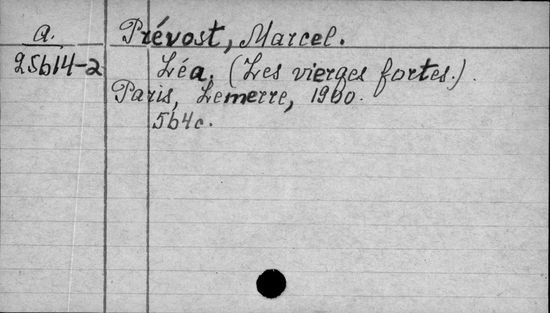 a. Prévost, Marcel.
25614-2 Léa. (Les vierges fortes.)
Paris, Lemerre, 1900.
564c.